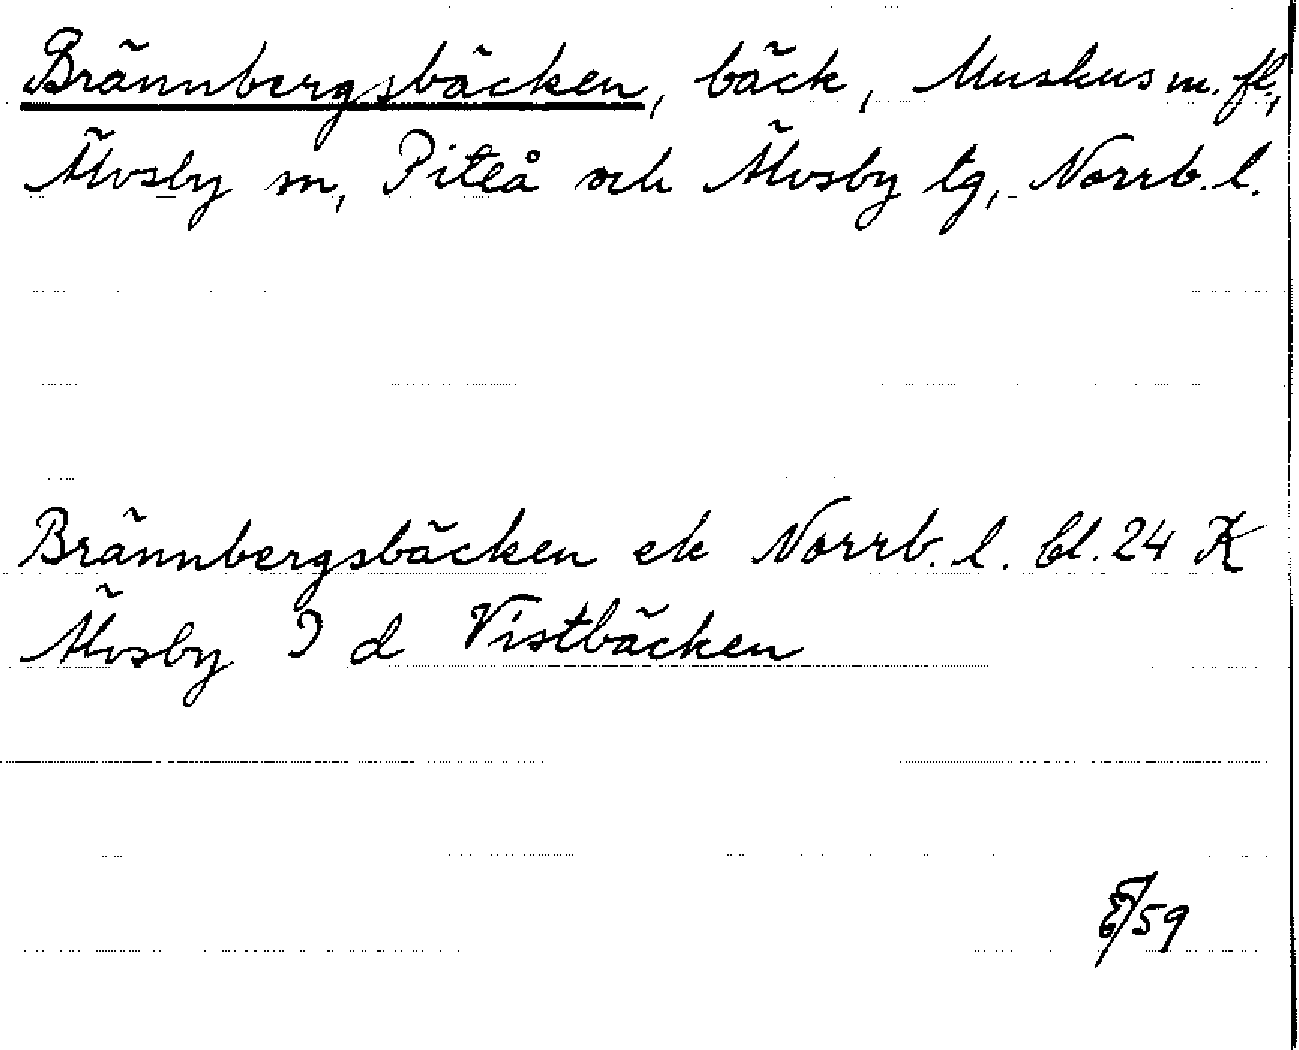 Brännbergsbäcken, bäck, Muskus m. fl.,
Älvsby sn, Piteå och Älvsby tg, Norrb. l.
Brännbergsbäcken ek Norrb. l. bl. 24 K
Älvsby I d Vistbäcken
/59